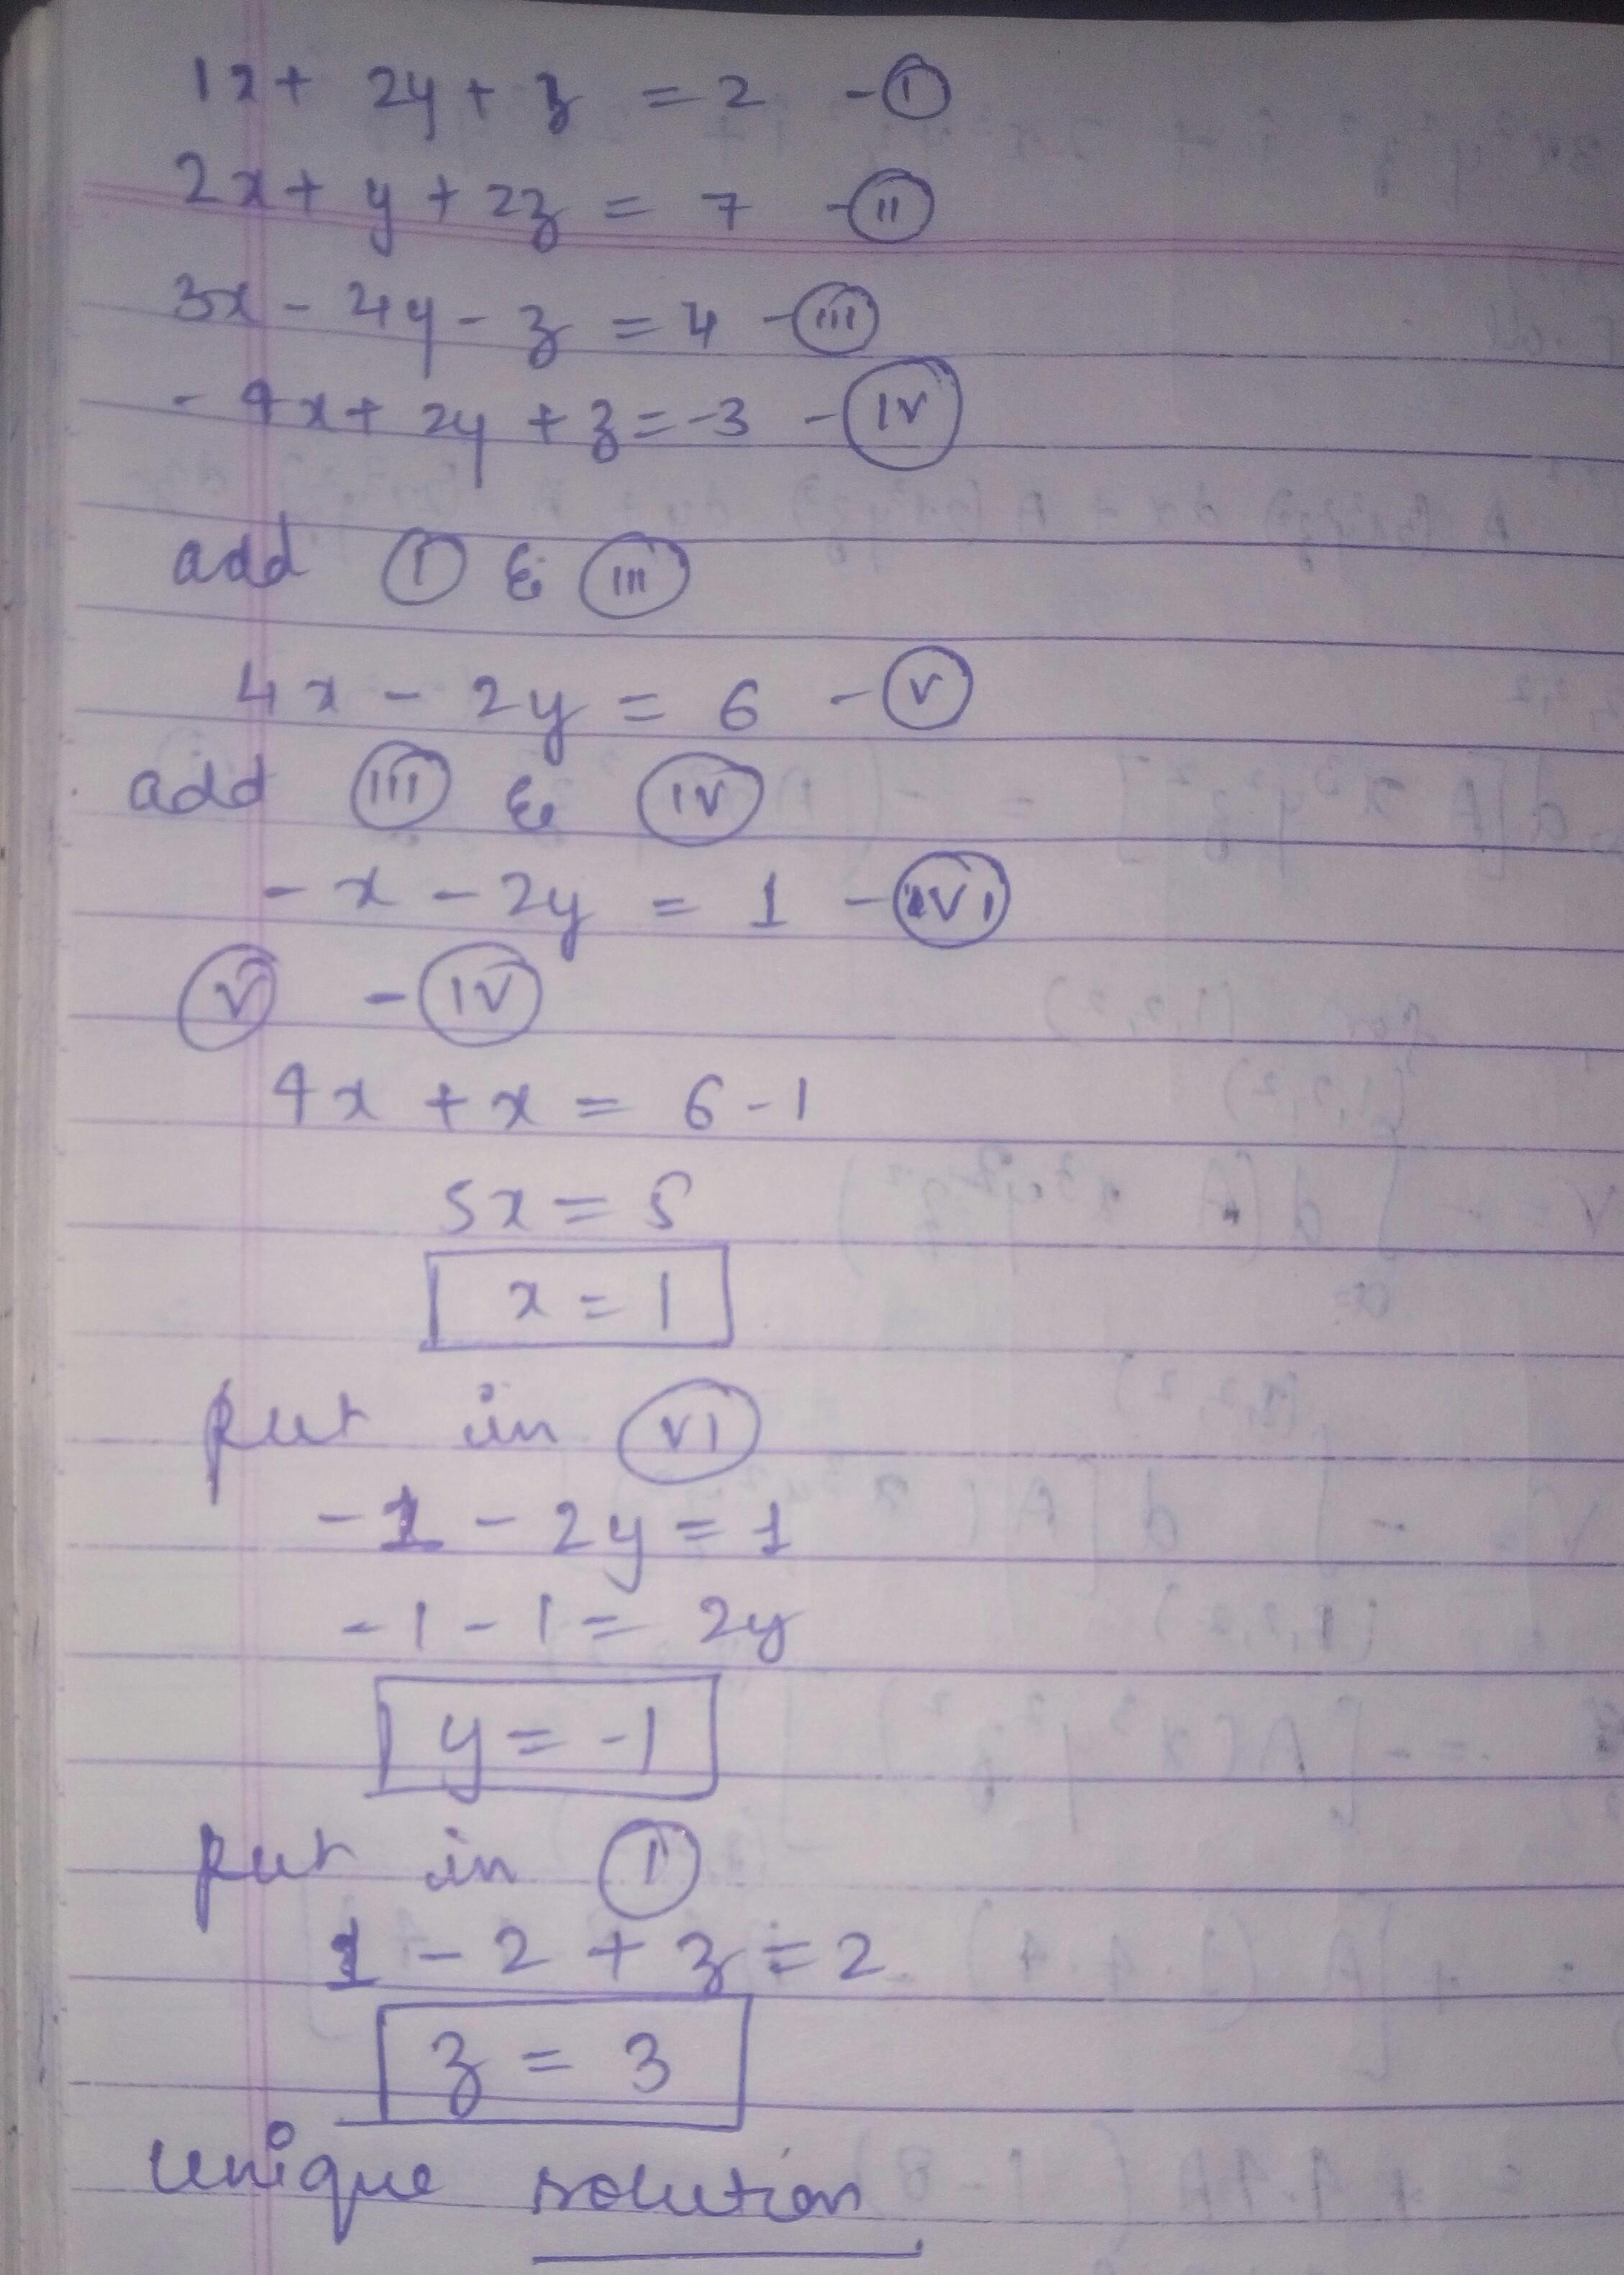 1x + 2y + z = 2 - I
2x + y + 2z = 7 - II
3x - 4y - z = 4 - III
- 4x + 2y + z = -3 - IV
add I & III
4x - 2y = 6 - V
add III & IV
- x - 2y = 1 - VI
V - IV
4x + x = 6 - 1
5x = 5
x = 1
put in VI
- 1 - 2y = 1
- 1 - 1 = 2y
y = -1
put in I
1 - 2 + z = 2
z = 3
unique solution